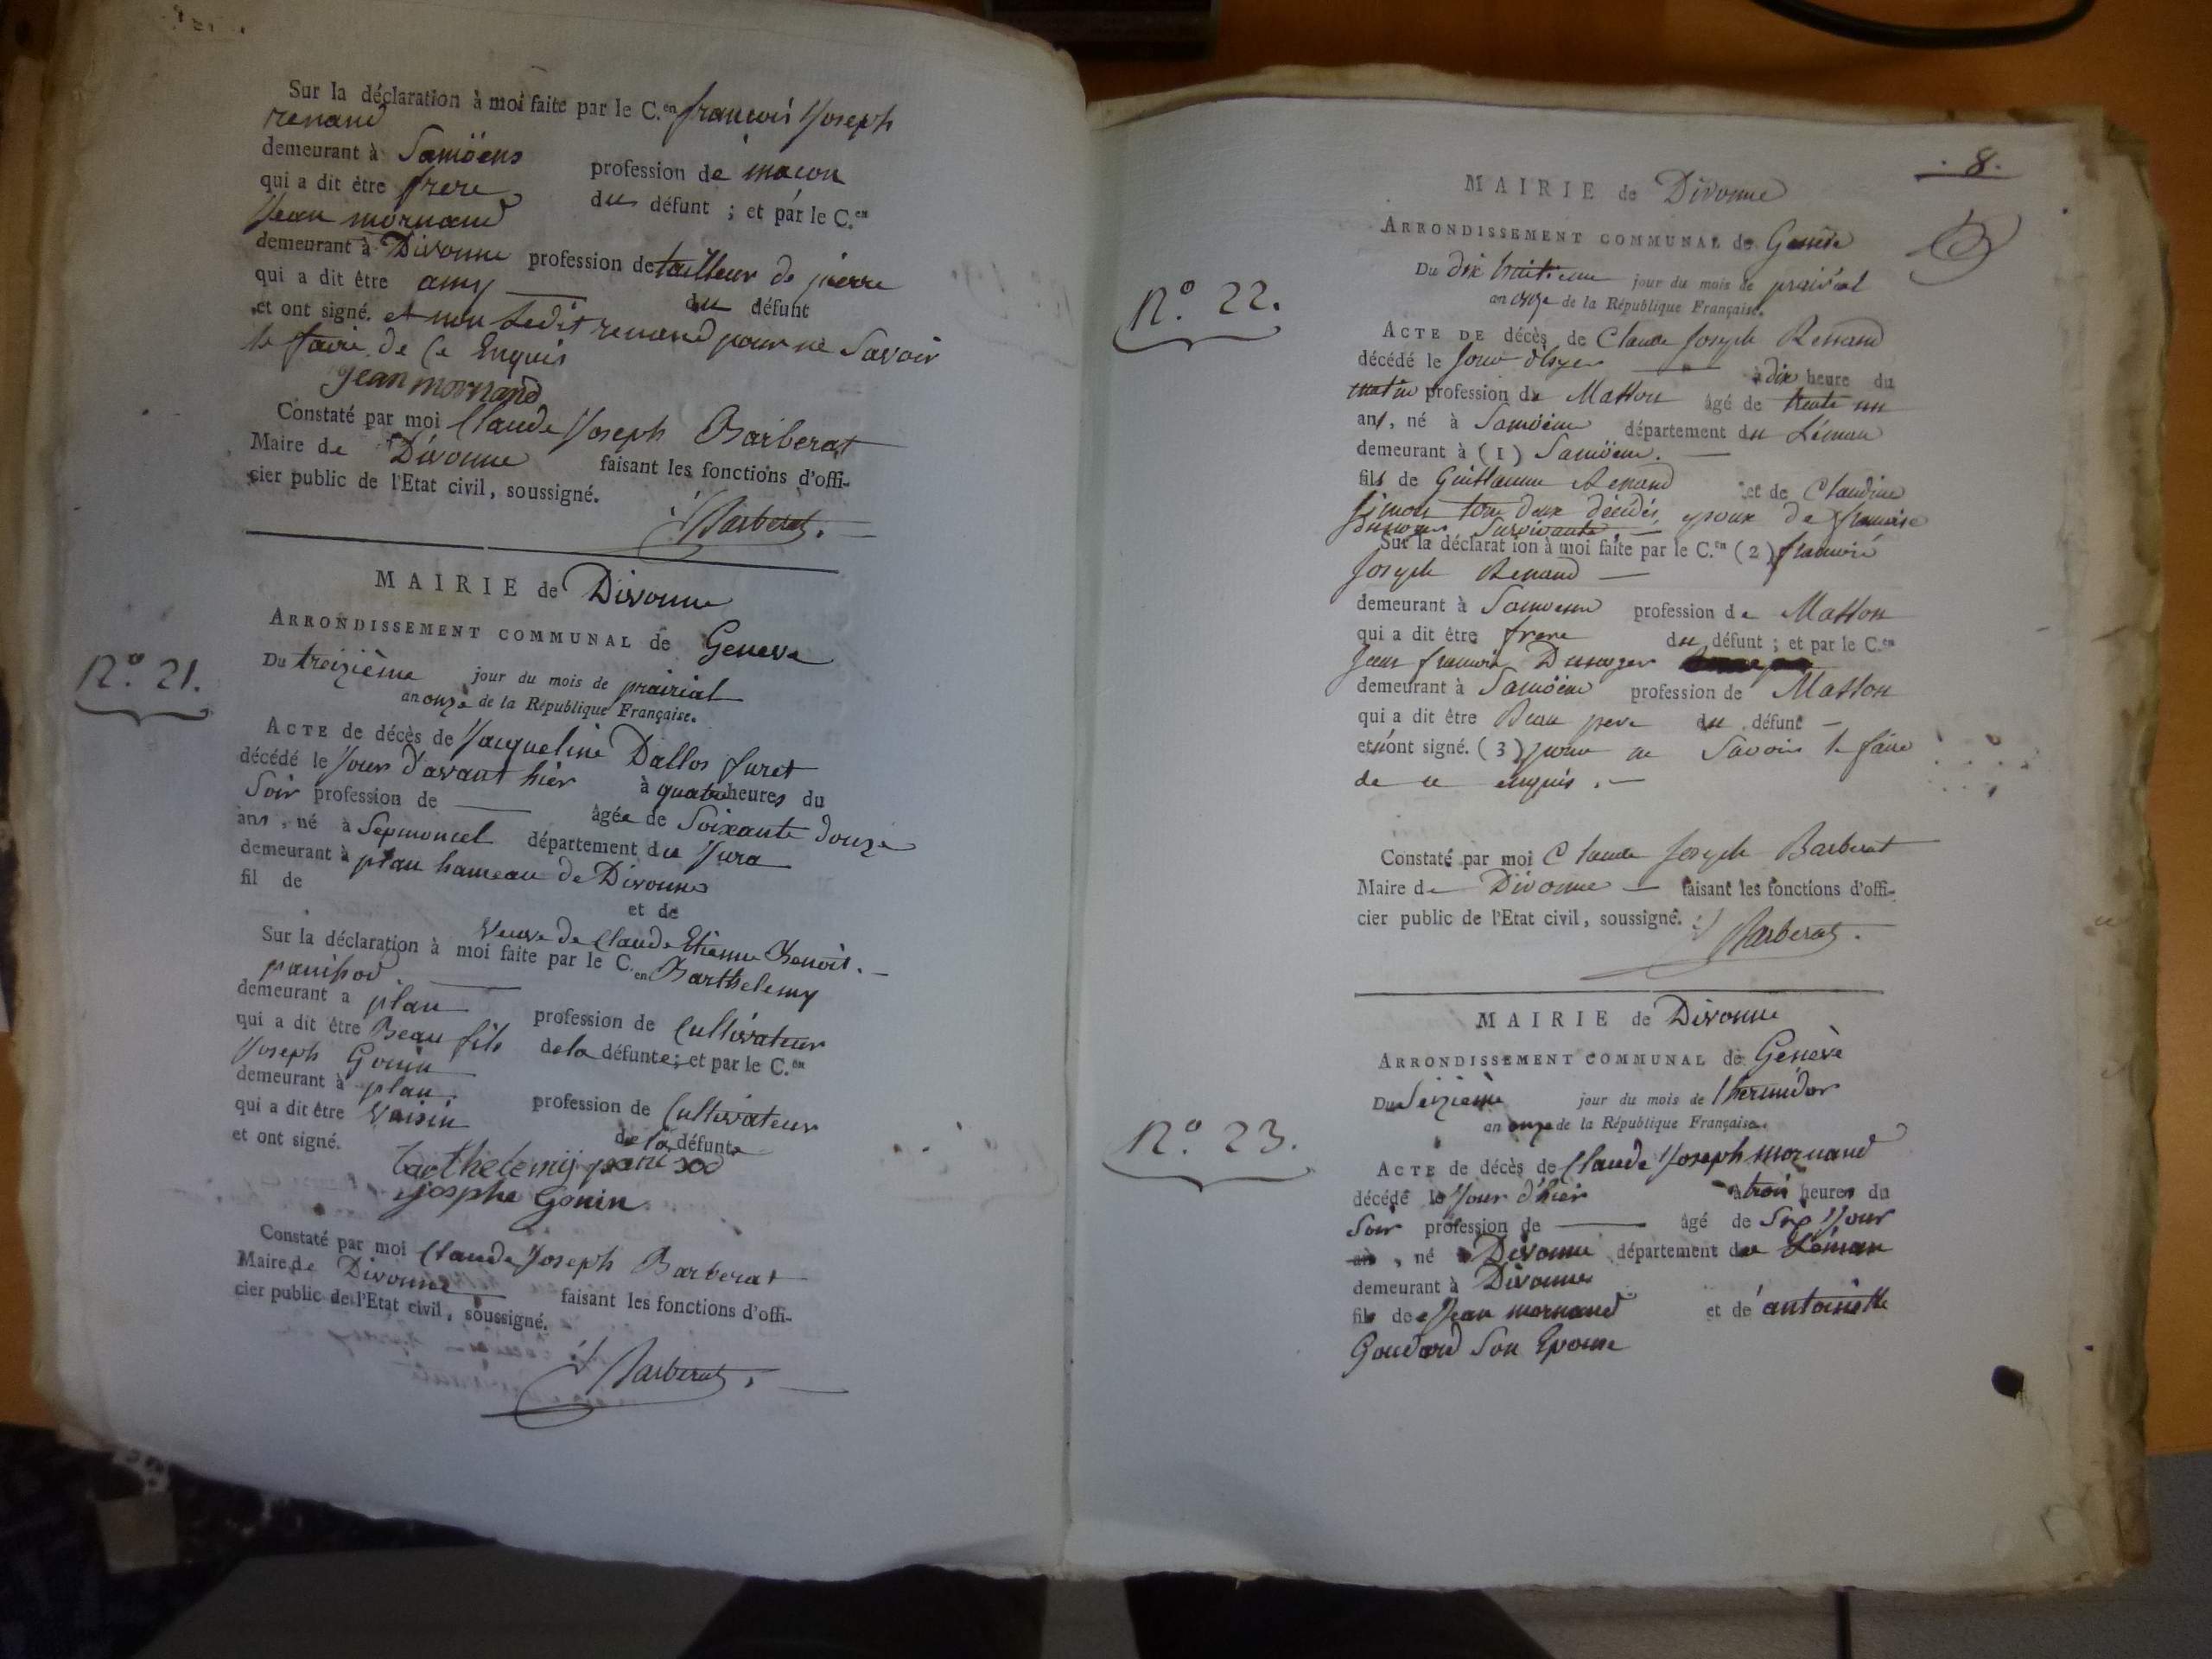 Sur la déclaration à moi faite par le C.en francois Joseph
renand
demeurant à Samöens profession de macon
qui a dit être frere du défunt ; et par le C.en
Jean mornand
demeurant à Divonne profession de tailleur de pierre
qui a dit être amy du défunt
et ont signé. et non ledit renand pour ne Savoir
le faire de ce Enquis
jean mornand
Constaté par moi Claude Joseph Barberat
Maire de Divonne faisant les fonctions d'offi-
cier public de l'Etat civil, soussigné.
Barberat.
MAIRIE de Divonne
ARRONDISSEMENT COMMUNAL de Geneve
N.° 21.
Du treizième jour du mois de prairial
an onze de la République Française.
ACTE de décès de Jacqueline Dallos furet
décédé le Jour d'avant hier à quatre heures du
Soir profession de — âgée de Soixante douze
ans, né à Sepmoncel département du Jura
demeurant à plan hameau de Divonne
fil de et de
Veuve de Claude Etienne Benoit. —
Sur la déclaration à moi faite par le C.en Barthelemy
panissod
demeurant a plan profession de Cultivateur
qui a dit être Beau fils de la défunte ; et par le C.en
Joseph Gonin
demeurant à plan profession de Cultivateur
qui a dit être Voisin de la défunte
et ont signé.
barthelemy
josphe Gonin
Constaté par moi Claude Joseph Barberat
Maire de Divonne faisant les fonctions d'offi-
cier public de l'Etat civil, soussigné.
Barberat.
. 8.
MAIRIE de Divonne
ARRONDISSEMENT COMMUNAL de Genève
Du dix huitieme jour du mois de prairial
an onze de la République Française.
N.° 22.
ACTE DE décès de Claude Joseph Renand
décédé le Jour d'hyer — à dix heure du
matin profession de Masson âgé de trente un
ans, né à Samöens département du Léman
demeurant à (1) Samöens. —
fils de Guillaume Renand et de Claudine
Simon tous deux décédés, epoux de francoise
Survivante. —
Sur la déclaration à moi faite par le C.en (2) francois
Joseph Renand —
demeurant à Samoens profession de Masson
qui a dit être frere du défunt ; et par le C.en
Jean francois
demeurant à Samöens profession de Masson
qui a dit être Beau pere du défunt —
et n'ont signé. (3) pour ne Savoir le faire
de ce enquis. —
Constaté par moi Claude Joseph Barberat
Maire de Divonne — faisant les fonctions d'offi-
cier public de l'Etat civil, soussigné.
Barberat.
MAIRIE de Divonne
ARRONDISSEMENT COMMUNAL de Genève
Du Seizième jour du mois de thermidor
an onze de la République Française.
N.° 23.
ACTE de décès de Claude Joseph mornand
décédé le Jour d'hier à trois heures du
Soir profession de — âgé de Six Jour
ans, né à Divonne département du Léman
demeurant à Divonne
fils de Jean mornand et de antoinette
Goudard Son Epouse